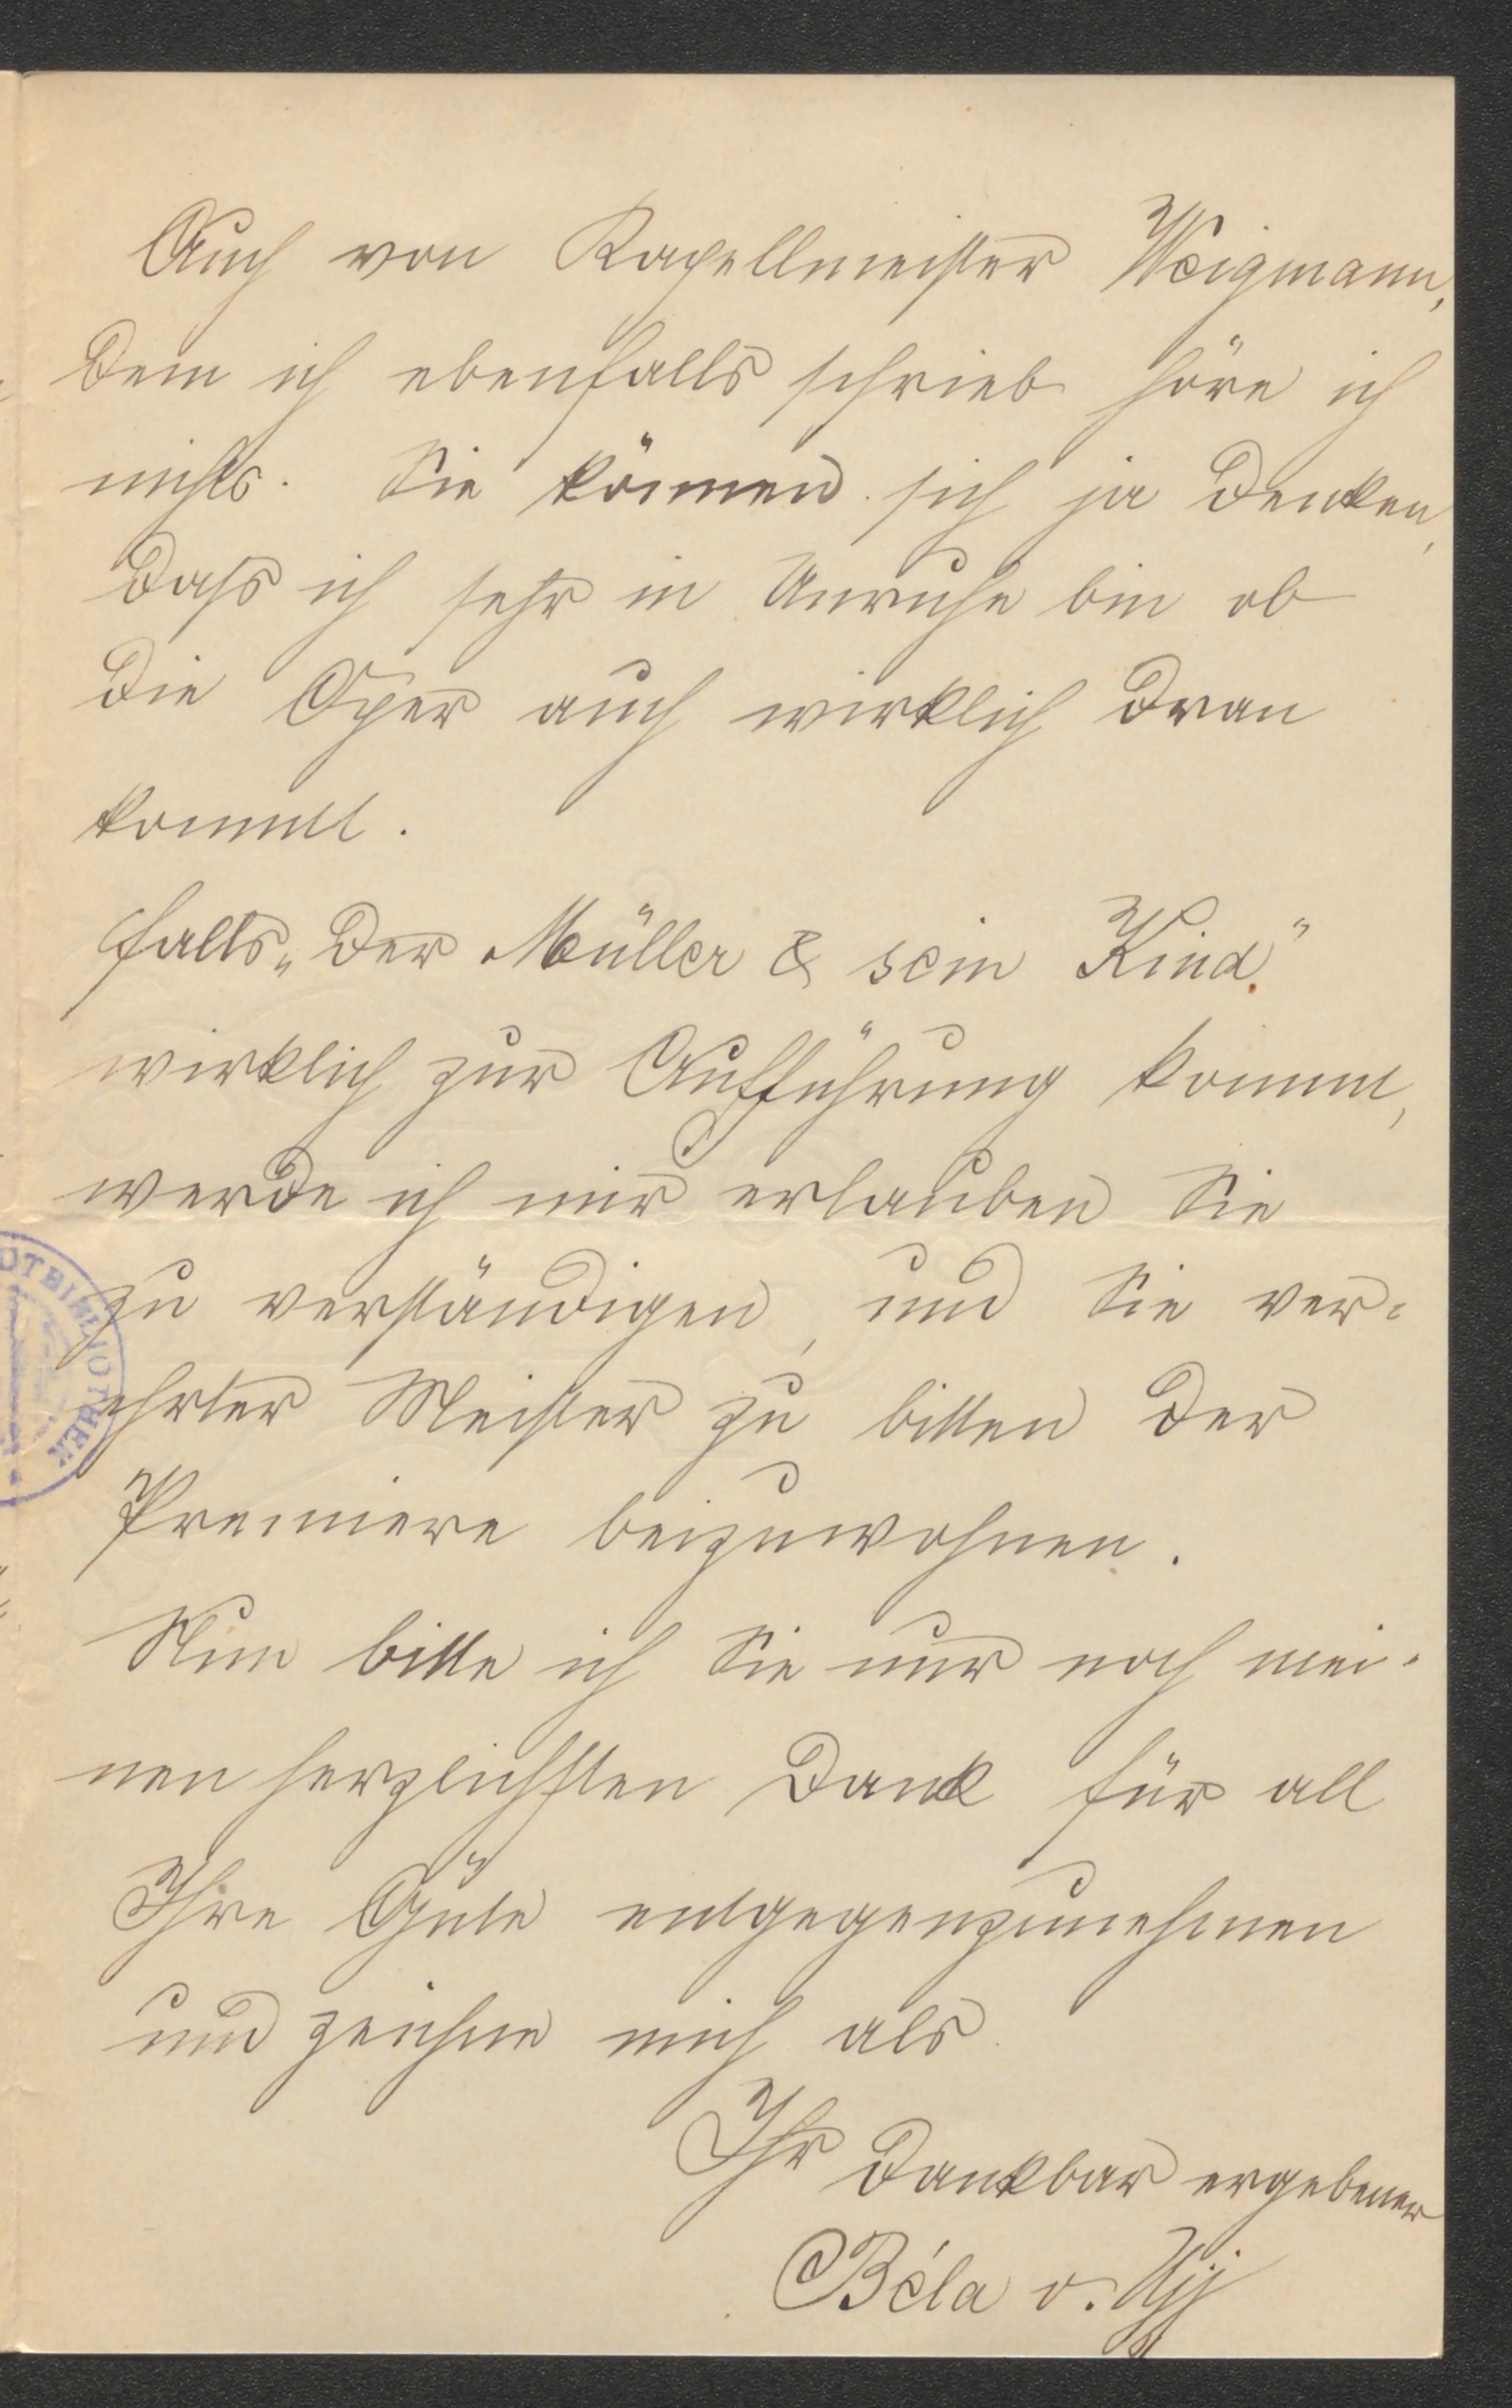 Auch von Kapellmeister Weigmann,
dem ich ebenfalls schrieb höre ich
nichts. Sie können sich ja denken,
dass ich sehr in Unruhe bin ob
die Oper auch wirklich dran
kommt.
Falls „Der Müller & sein Kind"
wirklich zur Aufführung kommt,
werde ich mir erlauben Sie
zu verständigen, und Sie ver-
ehrter Meister zu bitten der
Premiere beizuwohnen.
Nun bitte ich Sie nur noch mei-
nen herzlichsten Dank für all
Ihre Güte entgegenzunehmen
und zeichne mich als
Ihr dankbar ergebener
Béla v. Ujj
DTBIBLIOTHEK